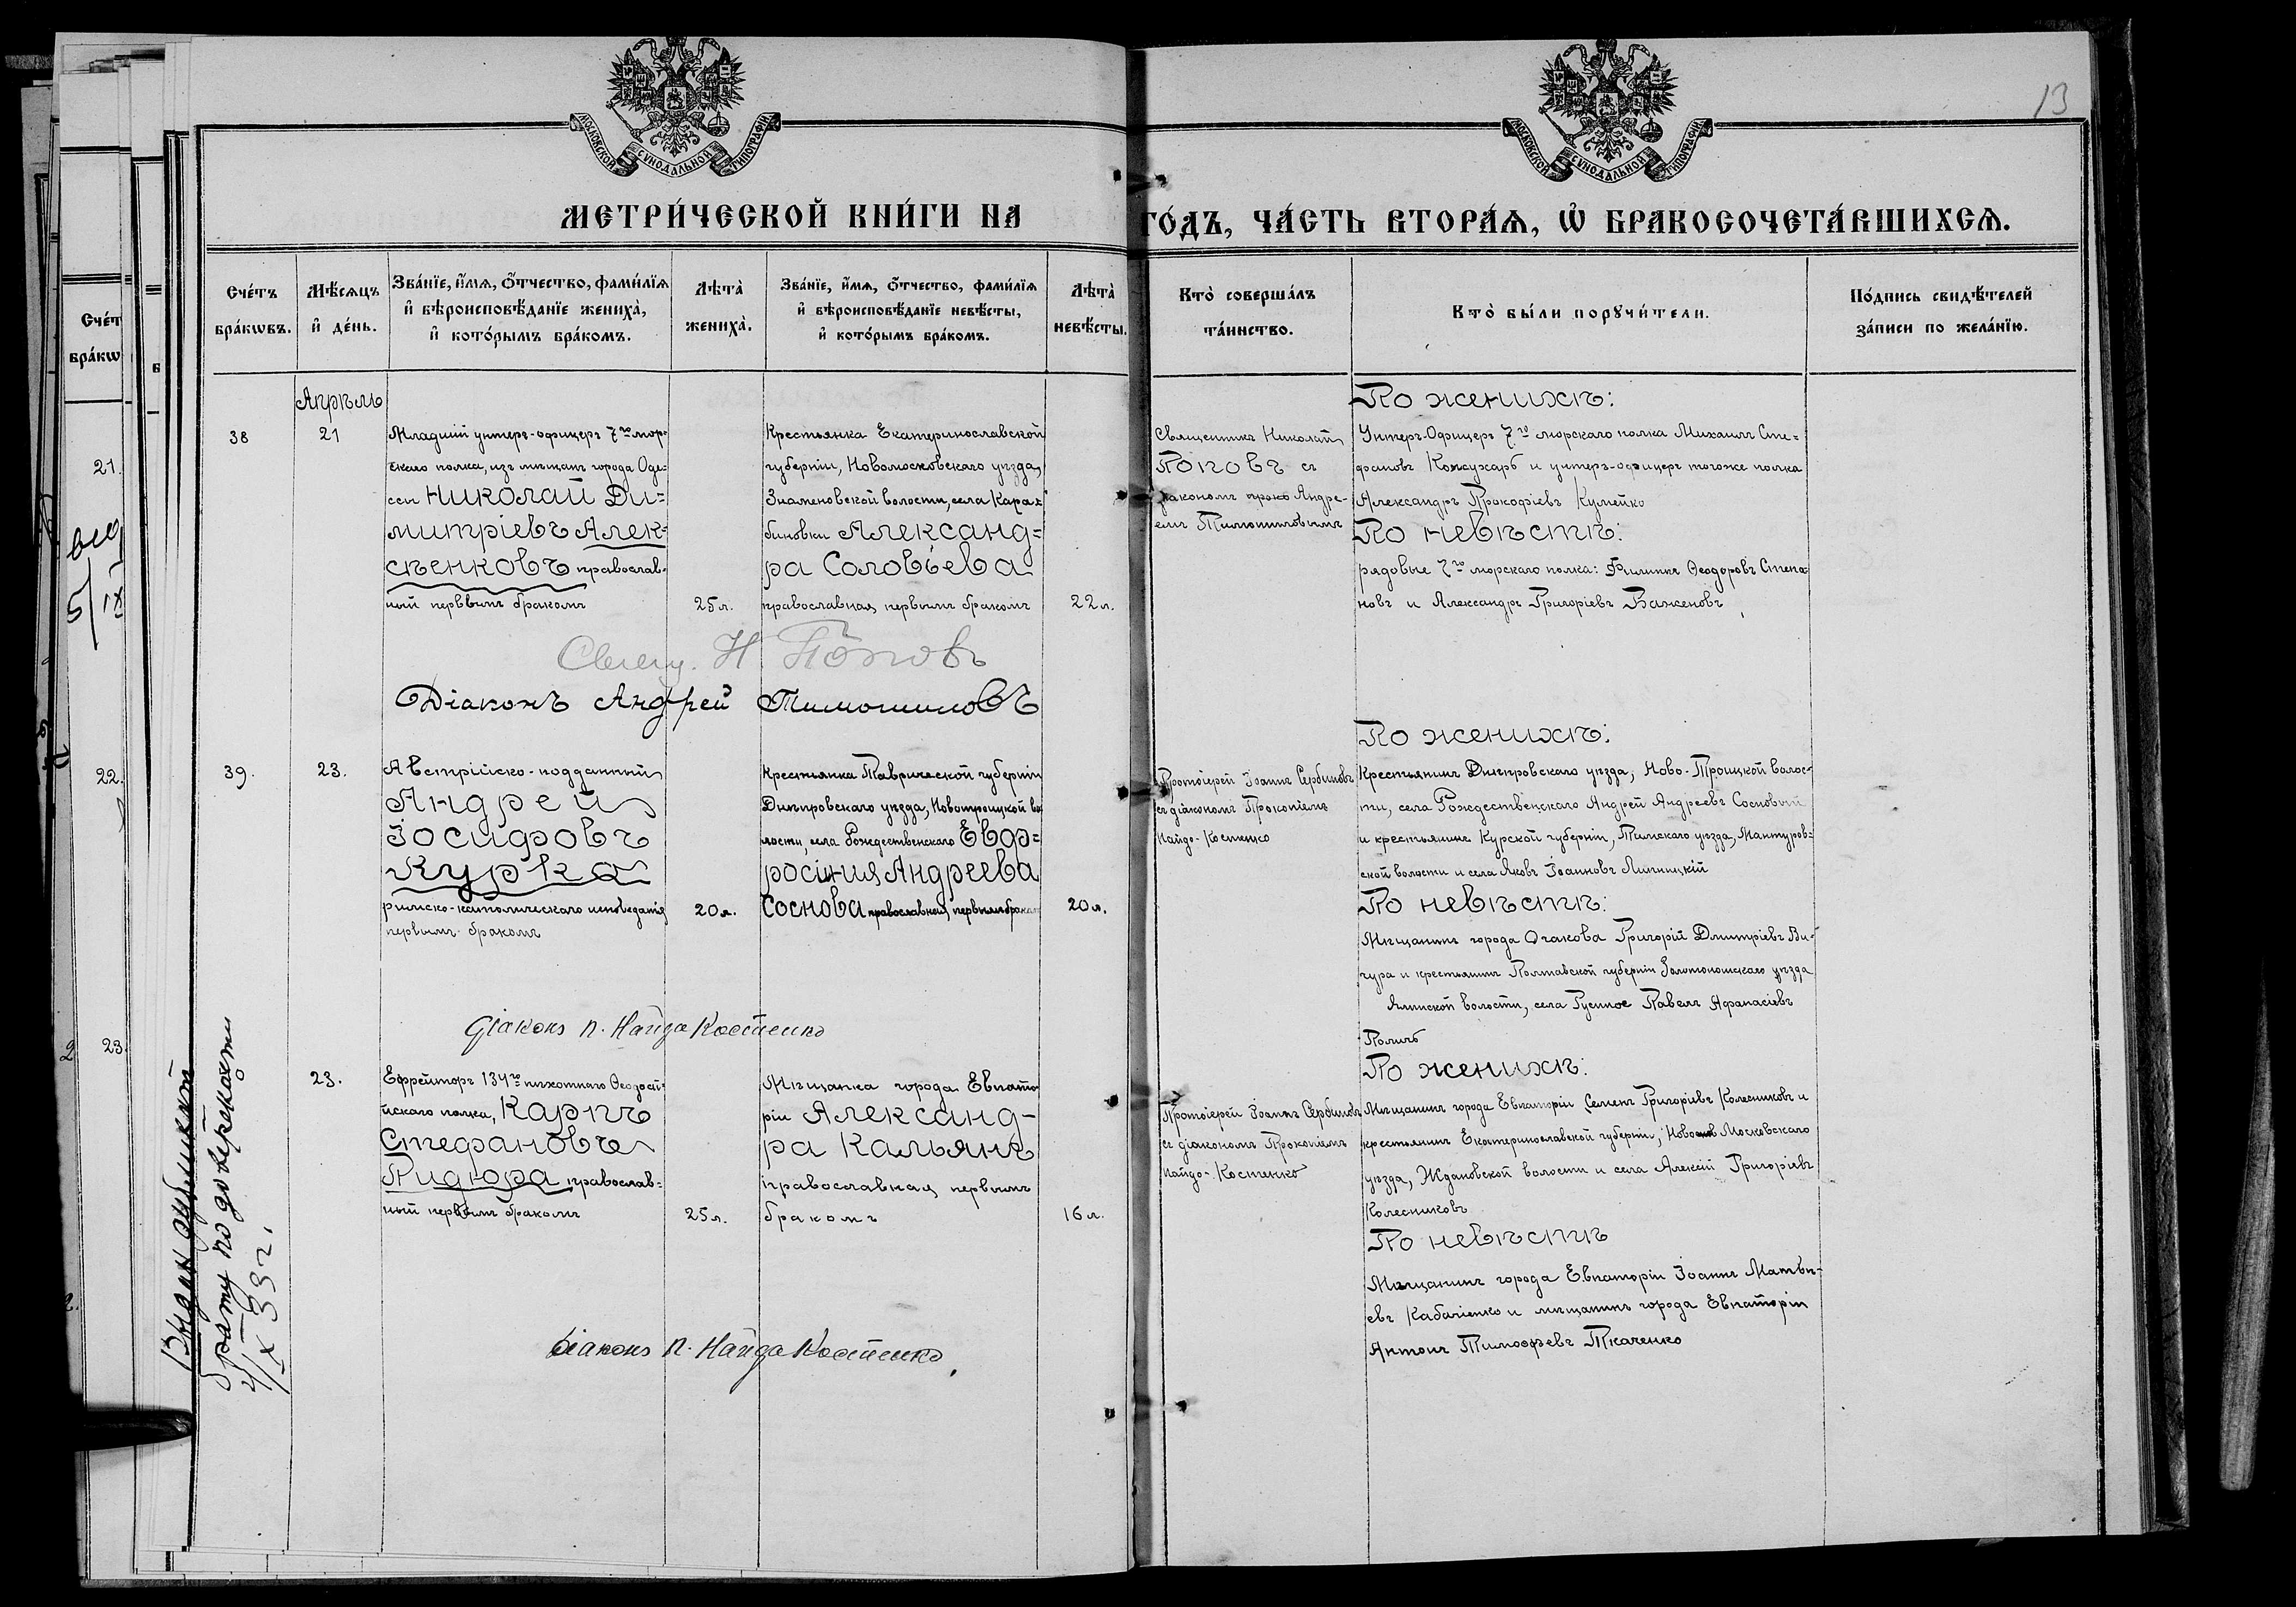 13
МОСКОВСКОЙ СѴНОДАЛЬНОЙ ТИПОГРАФІИ
МОСКОВСКОЙ СѴНОДАЛЬНОЙ ТИПОГРАФІИ
МЕТРИ́ЧЕСКОЙ КНИ́ГИ НА ГО́ДЪ, ЧА́СТЬ ВТОРА́Ѧ, Ѡ҆ БРАКОСОЧЕТА́ВШИХСѦ.
Сче́тъ
бра́кѡвъ.
Мѣ́сѧцъ
и҆ де́нь.
Зва́нїе, и҆́мѧ, ѻ҆́тчество, фами́лїѧ
и҆ вѣроисповѣ́данїе жениха̀,
и҆ кото́рымъ бра́комъ.
Лѣта̀
жениха̀.
Зва́нїе, и҆́мѧ, ѻ҆́тчество, фами́лїѧ
и҆ вѣроисповѣ́данїе невѣ́сты,
и҆ кото́рымъ бра́комъ.
Лѣта̀
невѣ́сты.
Кто̀ соверша́лъ
та́инство.
Кто̀ бы́ли порꙋчи́тели.
По́дпись свидѣ́телей
за́писи по жела́нїю.
Сче́т
бра́кѡ
21.
5/IX
22.
23.
Апрѣль
38
21
Младшій унтеръ-офицеръ 7го мор=
скаго полка, изъ мѣщанъ города Оде=
ссы Николай Ди=
митріевъ Алек=
сѣенковъ православ-
ный первымъ бракомъ
25 л.
Крестьянка Екатеринославской
губерніи, Новомосковскаго уѣзда,
Знаменовской волости, села Кара=
биновки Александ=
ра Соловьева
православная, первымъ бракомъ
22 л.
Священникъ Николай
Поповъ съ
діакономъ Андре-
емъ Тимошиловымъ
По женихѣ:
Унтеръ-Офицеръ 7го морскаго полка Михаилъ Сте=
фановъ Кожухарь и унтеръ-офицеръ тогоже полка
Александръ Прокофіевъ Кулейко
По невѣстѣ:
рядовые 7го морскаго полка: Филиппъ Ѳеодоровъ Степа=
новъ и Александръ Григоріевъ Баженовъ
Свящ. Н Поповъ
Діаконъ Андрей Тимошиловъ
39.
23.
Австрійско-подданный
Андрей
Іосифовъ
Курка
римско-католическаго исповеданія
первымъ бракомъ
20 л.
крестьянка Таврической губерніи
Днѣпровскаго уѣзда, Новотроицкой во
лости, села Рождественскаго Евф=
росинія Андреева
Соснова православной, первымъ бракомъ
20 л.
Протоіерей Іоаннъ Сербиновъ
съ діакономъ Прокопіемъ
Найдо-Костенко
По женихѣ:
Крестьянинъ Днѣпровскаго уѣзда, Ново-Троицкой волос-
ти, села Рождественскаго Андрей Андреевъ Сосновый
и крестьянинъ Курской губерніи, Тимскаго уѣзда, Мантуров=
ской волости и села Яковъ Іоанновъ
По невѣстѣ:
Мѣщанинъ города Очакова Григорій Дмитріевъ Ви-
чура и крестьянинъ Полтавской губерніи Золотоношскаго уѣзда
волости, села Павелъ Афанасіевъ
Діаконъ П. Найда Костенко
23.
Ефрейторъ 134го пѣхотнаго Ѳеодосі=
йскаго полка, Карпъ
Стефановъ
Ридюра православ=
ный первымъ бракомъ
25 л.
Мѣщанка города Евпато
ріи Александ-
ра Кальянъ
православная, первымъ
бракомъ
16 л.
Протоіерей Іоаннъ Сербиновъ
съ діакономъ Прокопіемъ
Найдо-Костенко
По женихѣ:
Мѣщанинъ города Евпаторіи Семенъ Григорьевъ Колесниковъ и
крестьянинъ Екатеринославской губерніи, Ново Московскаго
уѣзда, Ждановской волости и села Алексій Григоріевъ
Колесниковъ
По невѣстѣ
Мѣщанинъ города Евпаторіи Іоаннъ Матвѣ-
евъ Кабаченко и мѣщанинъ города Евпаторіи
Антонъ Тимофеевъ Ткаченко
Діаконъ П. Найда Костенко
Выдан дубликат
брату по доверенности
4/IX 39 г.